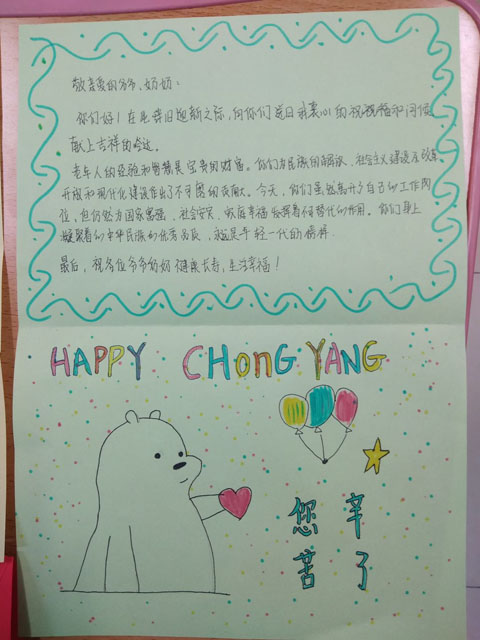 敬亲爱的爷爷、奶奶：
你们好！在辞旧迎新之际，向你们送日我衷心的祝福和问候
献上吉祥的
老年人的经验和智慧是宝贵的财富。你们为民族的解放、社会主义建设及改革
开放和现代化建设作出了不可磨的贡献。今天，你们虽然离开了自己的工作岗
位，但仍然为国家富强、社会安定、家庭幸福发挥着不可替代的作用。你们身上
凝聚着的中华民族的优秀品质，永远是年轻一代的榜样.
最后，祝各位爷爷奶奶健康长寿，生活幸福！
HAPPY CHONG YANG
您辛
苦了